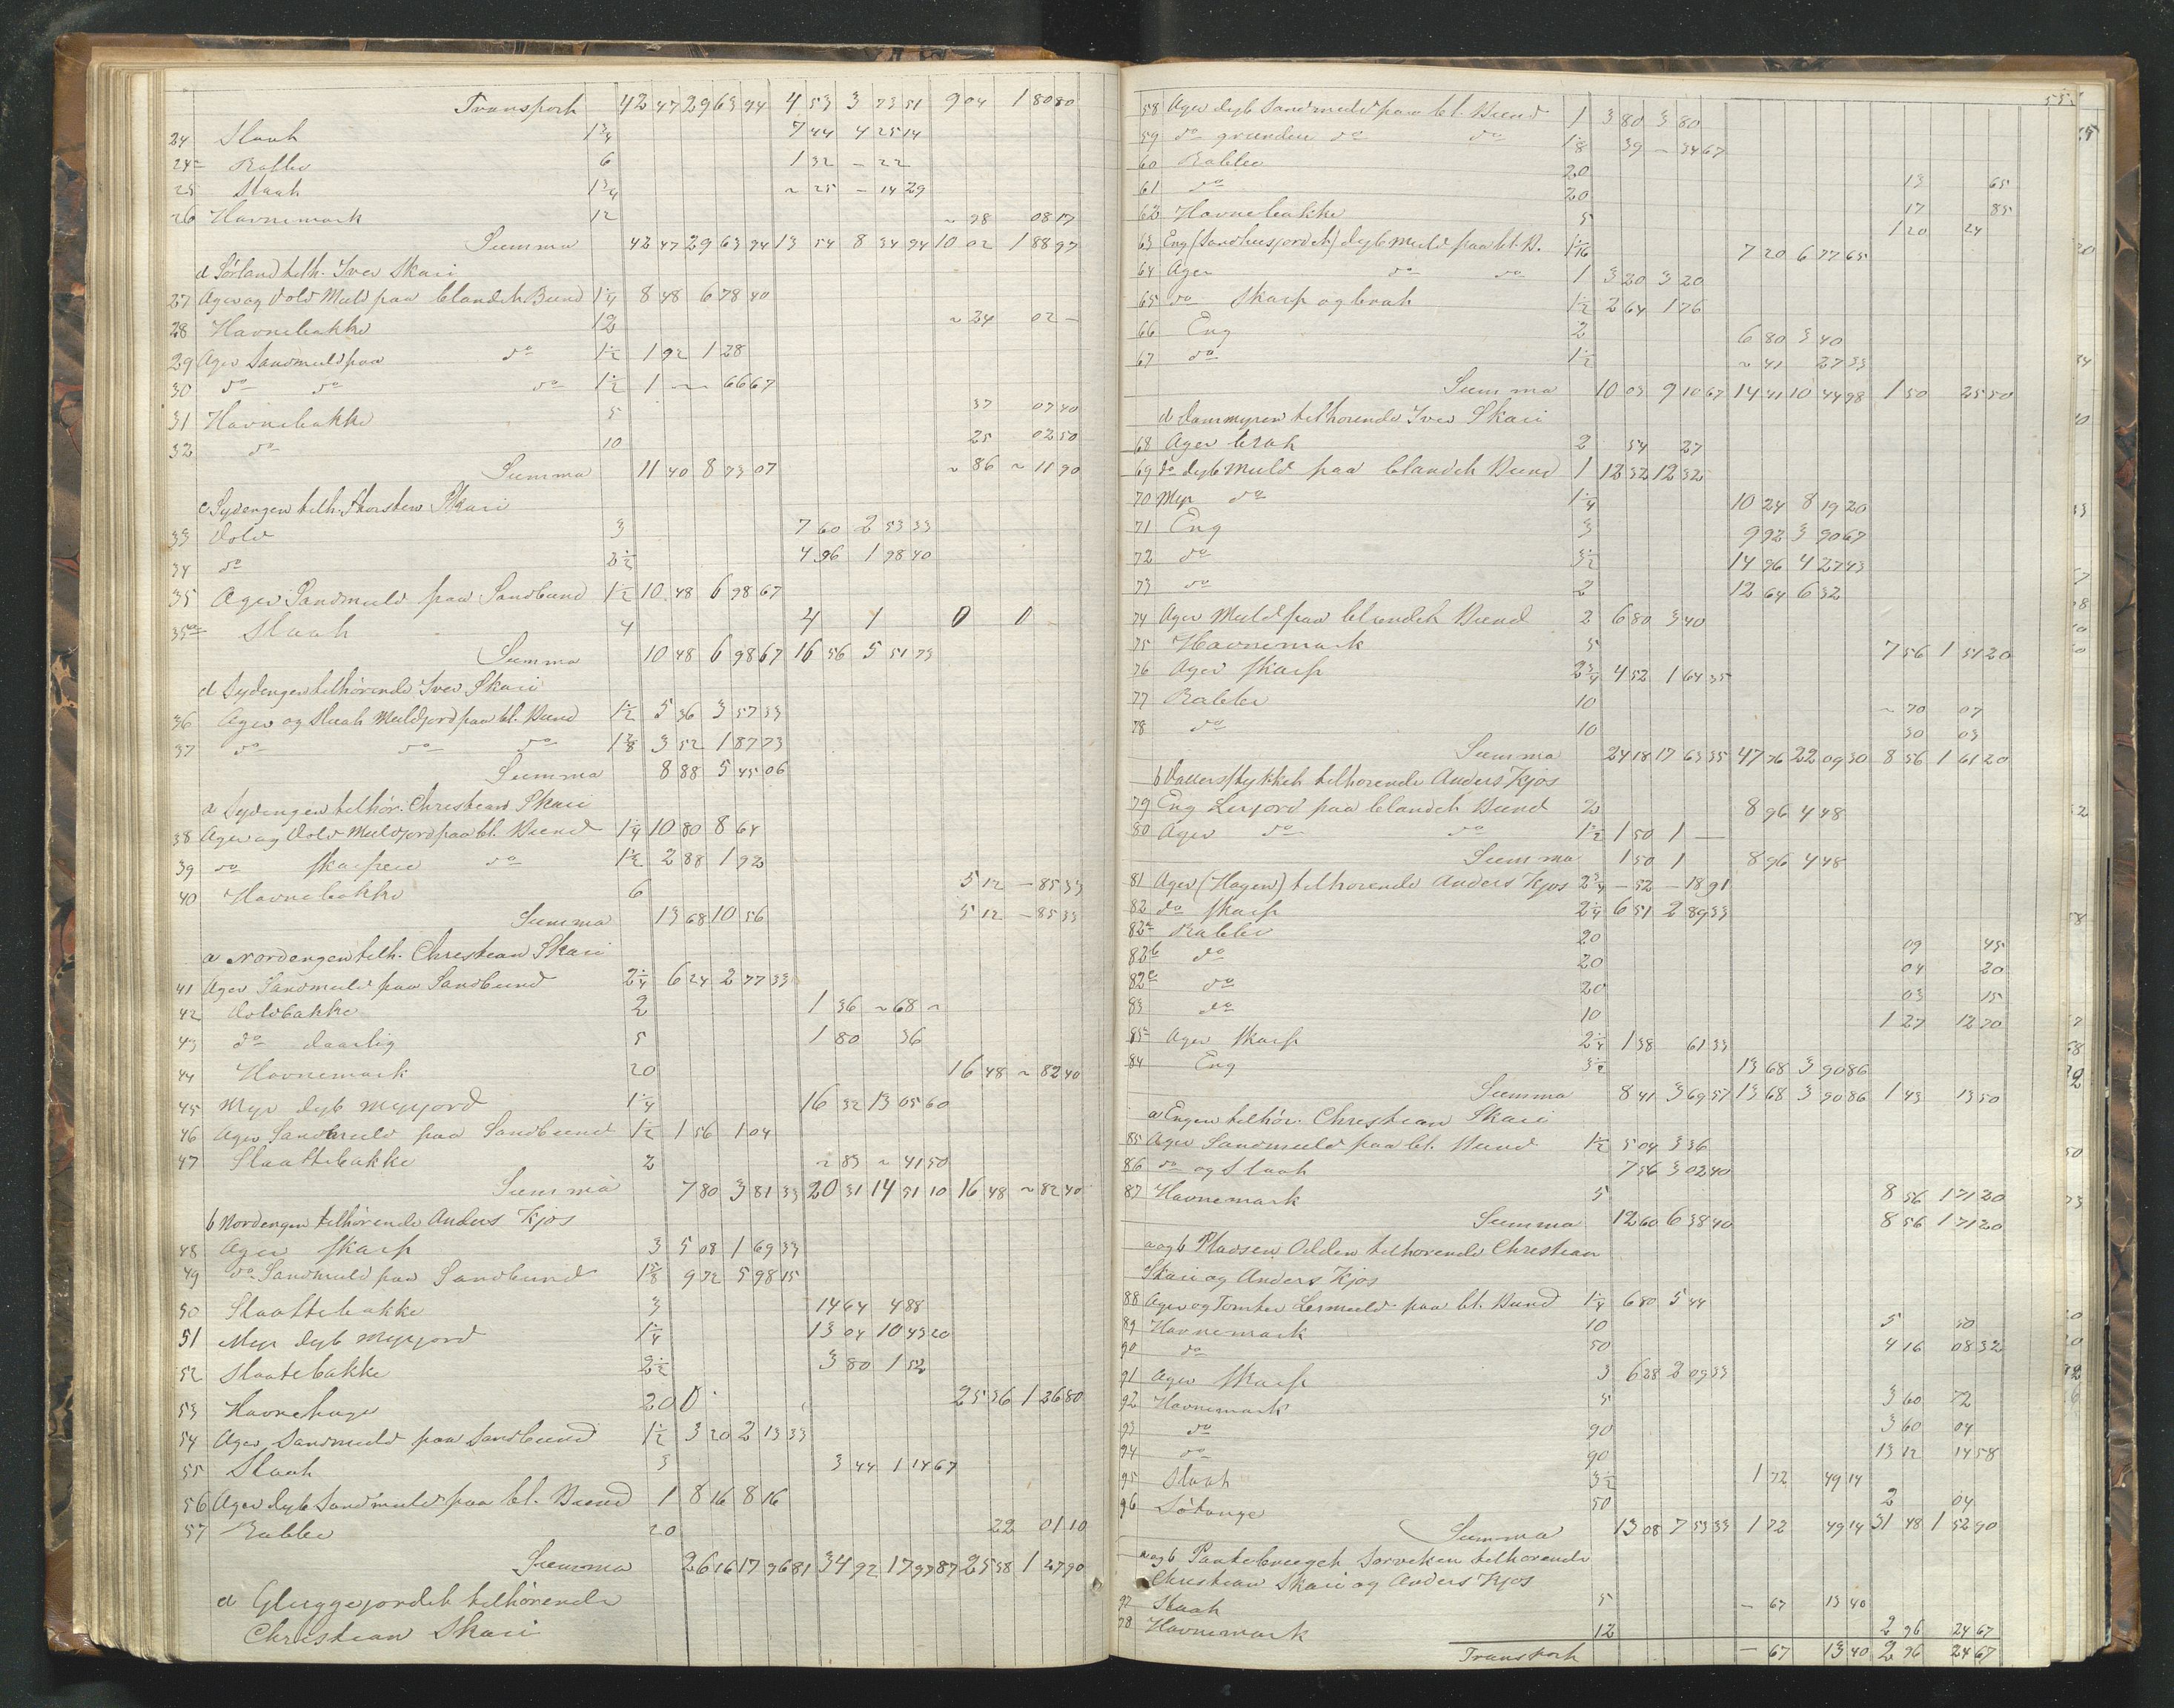 Transport 42 47 29 63 94 4 53 3 73 51 9 04 1 80 80
24 Slaat 1 3/4 7 44 4 25 14
24a Rabbe 6 1 32 – 22
25 Slaat 1 3/4 ~ 25 – 14 29
26 Havnemark 12 ~ 98 08 17
Summa 42 47 29 63 94 13 54 8 34 94 10 02 1 88 97
d Sörland tilh. Iver Skari
27 Ager og Vold Muld paa blandet Bund 1 1/4 8 48 6 78 40
28 Havnebakke 12 ~ 24 02 –
29 Ager Sandmuld paa do 1 1/2 1 92 1 28
30 do do do 1 1/2 1 ~ ~ 66 67
31 Havnebakke 5 37 07 40
32 do 10 25 02 50
Summa 11 40 8 73 07 ~ 86 ~ 11 90
c Sydengen tilh. Thorsten Skari
33 Vold 3 7 60 2 53 33
34 do 2 1/2 4 96 1 98 40
35 Ager Sandmuld paa Sandbund 1 1/2 10 48 6 98 67
35a Slaat 4 4 1 0 0
Summa 10 48 6 98 67 16 56 5 51 73
d Sydengen tilhörende Iver Skari
36 Ager og Slaat Muldjord paa bl. Bund 1 1/2 5 36 3 57 33
37 do do do 1 7/8 3 52 1 87 73
Summa 8 88 5 45 06
a Sydengen tilhör. Christian Skari
38 Ager og Vold Muldjord paa bl. Bund 1 1/4 10 80 8 64
39 do skarpere do 1 1/2 2 88 1 92
40 Havnebakke 6 5 12 – 85 33
Summa 13 68 10 56 5 12 – 85 33
a Nordengen tilh. Christian Skari
41 Ager Sandmuld paa Sandbund 2 1/4 6 24 2 77 33
42 Voldbakke 2 1 36 ~ 68 ~
43 do daarlig 5 1 80 36
44 Havnemark 20 16 48 ~ 82 40
45 Myr dyb Myrjord 1 1/4 16 32 13 05 60
46 Ager Sandmuld paa Sandbund 1 1/2 1 56 1 04
47 Slaattebakke 2 ~ 83 ~ 41 50
Summa 7 80 3 81 33 20 31 14 51 10 16 48 ~ 82 40
b Nordengen tilhörende Anders Kjos
48 Ager skarp 3 5 08 1 69 33
49 do Sandmuld paa Sandbund 1 5/8 9 72 5 98 15
50 Slaattebakke 3 14 64 4 88
51 Myr dyb Myrjord 1 1/4 13 04 10 43 20
52 Slaatebakke 2 1/2 3 80 1 52
53 Havnehage 20 0 25 36 1 26 80
54 Ager Sandmuld paa Sandbund 1 1/2 3 20 2 13 33
55 Slaat 3 3 44 1 14 67
56 Ager dyb Sandmuld paa bl. Bund 1 8 16 8 16
57 Rabbe 20 22 01 10
Summa 26 16 17 96 81 34 92 17 97 87 25 58 1 27 90
a Gluggejordet tilhörende
Christian Skari
58 Ager dyb Sandmuld paa bl. Bund 1 3 80 3 80
59 do grundere do do 1 1/8 39 – 34 67
60 Rabbe 20 13 65
61 do 20 17 85
62 Havnebakke 5 1 20 24
63 Eng (Sandhusjordet) dyb Muld paa bl. B. 1 1/16 7 20 6 77 65
64 Ager do do 1 3 20 3 20
65 do skarp og brat 1 1/2 2 64 1 76
66 Eng 2 6 80 3 40
67 do 1 1/2 ~ 41 27 33
Summa 10 03 9 10 67 14 41 10 44 98 1 50 25 50
d Dammyren tilhorende Iver Skari
68 Ager brat 2 54 27
69 do dyb Muld paa blandet Bund 1 12 32 12 32
70 Myr do 1 1/4 10 24 8 19 20
71 Eng 3 9 92 3 30 67
72 do 3 1/2 14 96 4 27 43
73 do 2 12 64 6 32
74 Ager Muld paa blandet Bund 2 6 80 3 40
75 Havnemark 5 7 56 1 51 20
76 Ager skarp 2 3/4 4 52 1 64 35
77 Rabbe 10 ~ 70 07
78 do 10 30 03
Summa 24 18 17 63 35 47 76 22 09 30 8 56 1 61 20
79 Eng Lerjord paa blandet Bund 2 8 96 4 48
80 Ager do do 1 1/2 1 50 1 –
Summa 1 50 1 8 96 4 48
81 Ager (Hagen) tilhorende Anders Kjos 2 3/4 – 52 – 18 91
82 do skarp 2 1/4 6 51 2 89 33
82a Rabbe 20 09 45
82b do 20 04 20
82c do 20 03 15
83 do 10 1 27 12 70
83a Ager skarp 2 1/4 1 38 61 33
84 Eng 3 1/2 13 68 3 90 86
Summa 8 41 3 69 57 13 68 3 90 86 1 43 13 50
a Engen tilhör. Christian Skari
85 Ager Sandmuld paa bl. Bund 1 1/2 5 04 3 36
86 do og Slaat 7 56 3 02 40
87 Havnemark 5 8 56 1 71 20
Summa 12 60 6 38 40 8 56 1 71 20
a og b Pladsen Odden tilhorende Christian
Skari og Anders Kjos
88 Ager og Tomter Lermuld paa bl. Bund 1 1/4 6 80 5 44
89 Havnemark 10 5 50
90 do 50 4 16 08 32
91 Ager skarp 3 6 28 2 09 33
92 Havnemark 5 3 60 72
93 do 90 3 60 04
94 do 90 13 12 14 58
95 Slaat 3 1/2 1 72 49 14
96 50 2 04
Summa 13 08 7 53 33 1 72 49 14 31 48 1 52 90
a og b tilhorende
Christian Skari og Anders Kjos
97 Slaat 5 – 67 13 40
98 Havnemark 12 2 96 24 67
Transport – 67 13 40 2 96 24 67